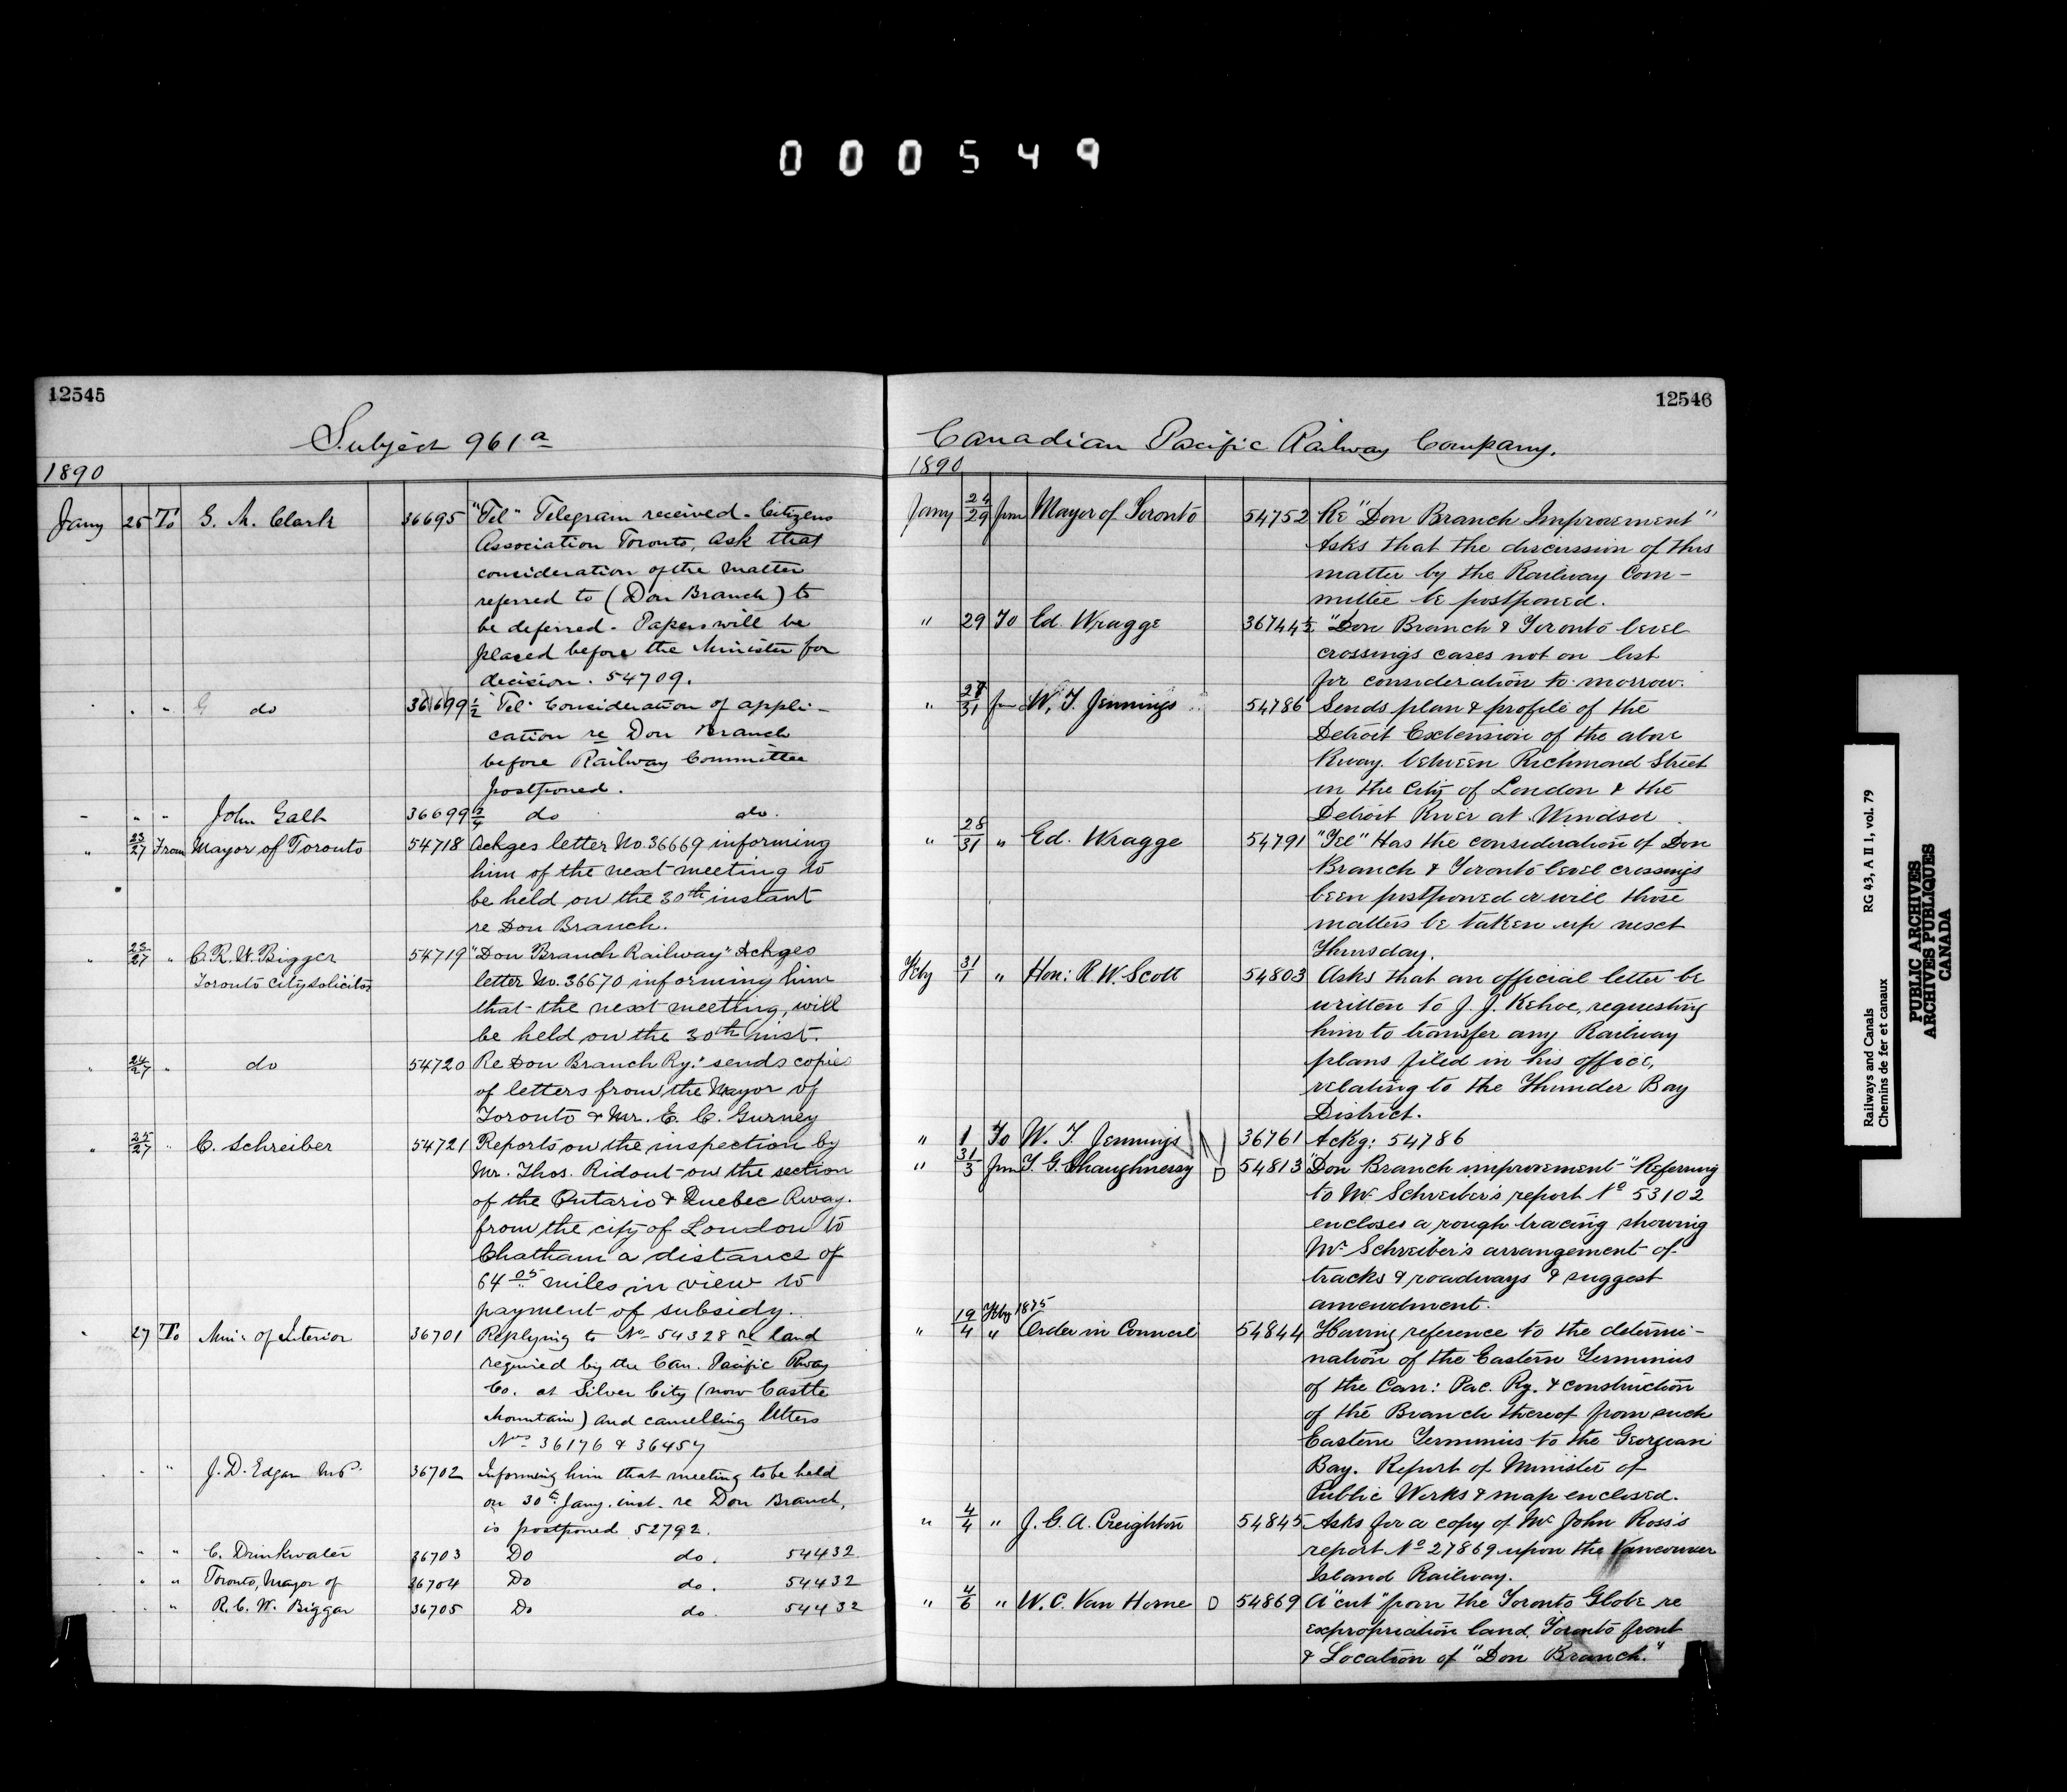 000549
12545
Subject 961a
1890
Jany 25 To G. M. Clark 36695 "Tel" Telegram received. Citizens
Association Toronto, ask that
consideration of the matter
referred to (Don Branch) to
be deferred. Papers will be
placed before the Minister for
decision. 54709.
" " do 36699 1/2 "Tel" Consideration of appli-
cation re Don Branch
before Railway Committee
postponed.
" " " John Galt 36699 3/4 do do.
" 23/27 From Mayor of Toronto 54718 Ackges letter No. 36669 informing
him of the next meeting to
be held on the 30th instant
re Don Branch.
" 25/27 " C. R. W. Bigger 54719 "Don Branch Railway" Ackges
Toronto City Solicitor letter No. 36670 informing him
that the next meeting, will
be held on the 30th inst.
" 24/27 " do 54720 Re Don Branch Ry: sends copies
of letters from the Mayor of
Toronto & Mr. E. C. Gurney
" 25/27 " C. Schreiber 54721 Reports on the inspection by
Mr. Thos. Ridout on the section
of the Ontario & Quebec Rway.
from the city of London to
Chatham a distance of
64 05 miles in view to
payment of subsidy.
" 27 To Min: of Interior 36701 Replying to No 54328 re land
required by the Can. Pacific Rway
Co. at Silver City (now Castle
Mountain) and cancelling letters
Nos 36176 & 36457
" " J. D. Edgar M.P. 36702 Informing him that meeting to be held
on 30th Jany. inst. re Don Branch,
is postponed 52792.
" " C. Drinkwater 36703 Do do. 54432
" " Toronto, Mayor of 36704 Do do. 54432
" R. C. W. Biggar 36705 Do do. 54432
12546
Canadian Pacific Railway Company.
1890
Jany 24/29 frm Mayor of Toronto 54752 Re "Don Branch Improvement"
Asks that the discussion of this
matter by the Railway Com-
mittee be postponed.
" 29 To Ed. Wragge 36744 1/2 "Don Branch & Toronto level
crossings cases not on list
for consideration to-morrow.
" 28/31 frm W. T. Jennings 54786 Sends plan & profile of the
Detroit Extension of the above
Rway. between Richmond Street
in the City of London & the
Detroit River at Windsor.
" 28/31 " Ed. Wragge 54791 "Tel" Has the consideration of Don
Branch & Toronto level crossings
been postponed or will those
matters be taken up next
Thursday.
Feby 31/1 " Hon: R. W. Scott 54803 Asks that an official letter be
written to J. J. Kehoe, requesting
him to transfer any Railway
plans filed in his office,
relating to the Thunder Bay
District.
" 1 To W. T. Jennings 36761 Ackg: 54786
" 31/3 frm T. G. Shaughnessy D 54813 "Don Branch improvement" Referring
to Mr Schreiber's report No 53102
encloses a rough tracing showing
Mr Schreiber's arrangement of
tracks & roadways & suggest
amendment.
" 19/4 Feby 1875 " Order in Council 54844 Having reference to the determi-
nation of the Eastern Terminus
of the Can: Pac. Ry. & construction
of the Branch thereof from such
Eastern Terminus to the Georgian
Bay. Report of Minister of
Public Works & map enclosed.
" 4/4 " J. G. A. Creighton 54845 Asks for a copy of Mr John Ross's
report No 27869 upon the Vancouver
Island Railway.
" 4/6 " W. C. Van Horne D 54869 A "cut" from the Toronto Globe re
expropriation land, Toronto front
& Location of "Don Branch."
Railways and Canals RG 43, A II 1, vol. 79
Chemins de fer et canaux
PUBLIC ARCHIVES
ARCHIVES PUBLIQUES
CANADA